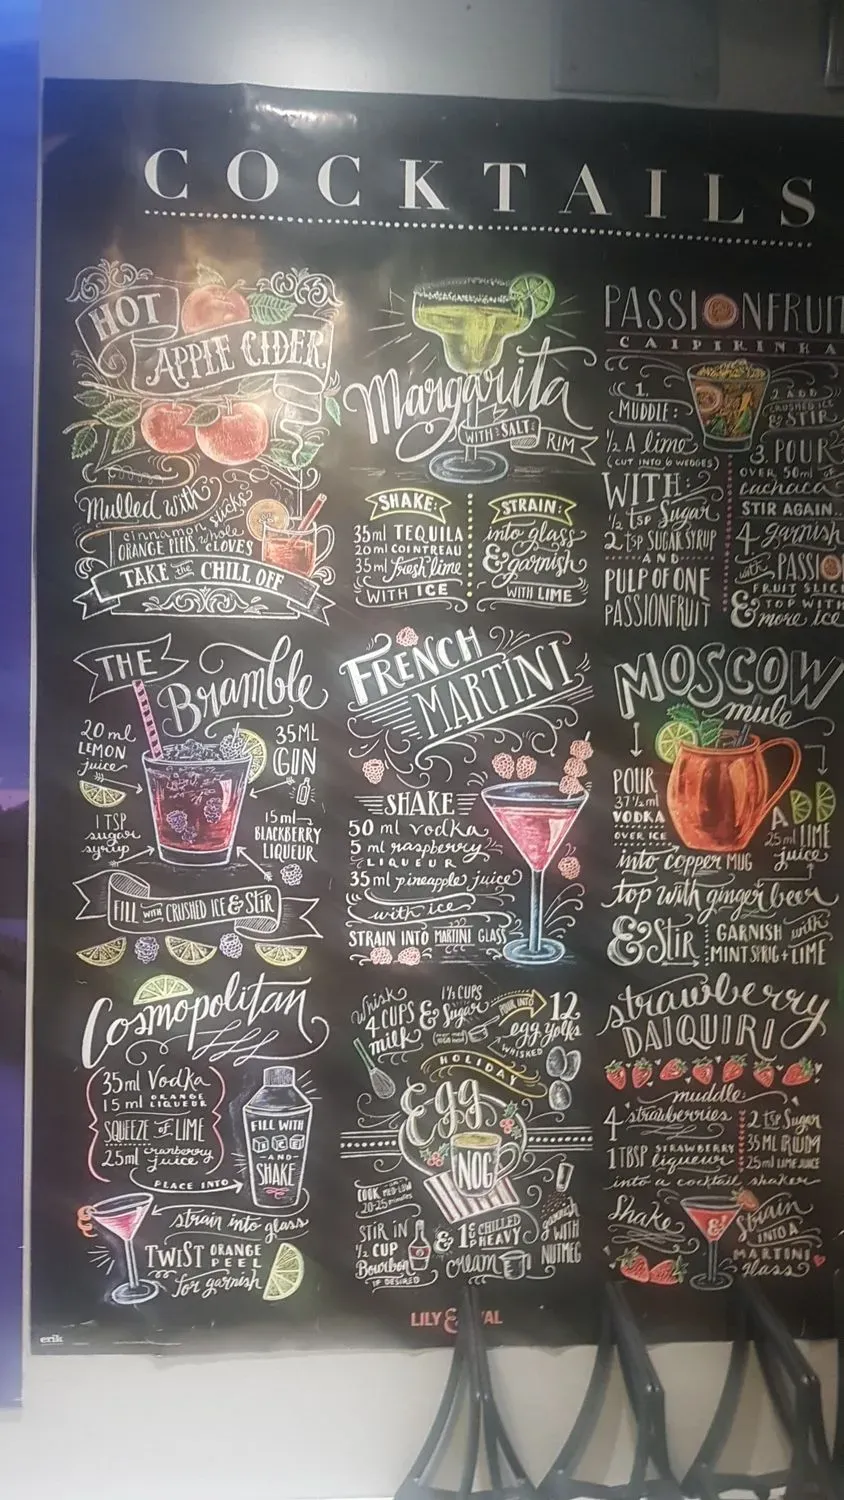 COCKTAILS
HOT
APPLE CIDER
Mulled with
cinnamon sticks
ORANGE PEELS, whole CLOVES
TAKE THE CHILL OFF
Margarita
WITH SALT
RIM
SHAKE:
35ml TEQUILA
20ml COINTREAU
35ml fresh lime
WITH ICE
STRAIN:
into glass
& garnish
WITH LIME
PASSIONFRUIT
CAIPIRINHA
1.
MUDDLE:
1/2 A lime
(CUT INTO 6 WEDGES)
WITH:
1/2 tsp Sugar
2 tsp SUGAR SYRUP
AND
PULP OF ONE
PASSIONFRUIT
2 ADD
CRUSHED ICE
& STIR
3. POUR
OVER 50ml of
cachaca
STIR AGAIN..
4 garnish
with PASSIO
FRUIT SLIC
& TOP WITH
more ice
THE
Bramble
20 ml
LEMON
juice
1 TSP
sugar
syrup
35ML
GIN
15ml
BLACKBERRY
LIQUEUR
FILL WITH CRUSHED ICE & STIR
FRENCH
MARTINI
SHAKE
50 ml vodka
5 ml raspberry
LIQUEUR
35ml pineapple juice
with ice
STRAIN INTO MARTINI GLASS
MOSCOW
mule
POUR
37 1/2 ml
VODKA
OVER ICE
A
25ml LIME
juice
into copper MUG
top with ginger beer
& Stir
GARNISH with
MINT SPRIG + LIME
Cosmopolitan
35ml Vodka
15ml ORANGE
LIQUEUR
SQUEEZE OF LIME
25ml cranberry
juice
PLACE INTO
FILL WITH
ICE
AND
SHAKE
strain into glass
TWIST ORANGE
PEEL
for garnish
Whisk
4 CUPS
milk
& 1 1/2 CUPS
Sugar
POUR INTO
12
egg yolks
WHISKED
HOLIDAY
Egg
NOG
COOK MED-LOW
20-25 minutes
STIR IN
1/2 CUP
Bourbon
IF DESIRED
& 1 c CHILLED
HEAVY
cream
garnish
WITH
NUTMEG
strawberry
DAIQUIRI
muddle:
4 strawberries
1 TBSP STRAWBERRY
liqueur
2 tsp Sugar
35 ML RUM
25 ml LIME JUICE
into a cocktail shaker
Shake
&
Strain
INTO A
MARTINI
glass
LILY & VAL
erik